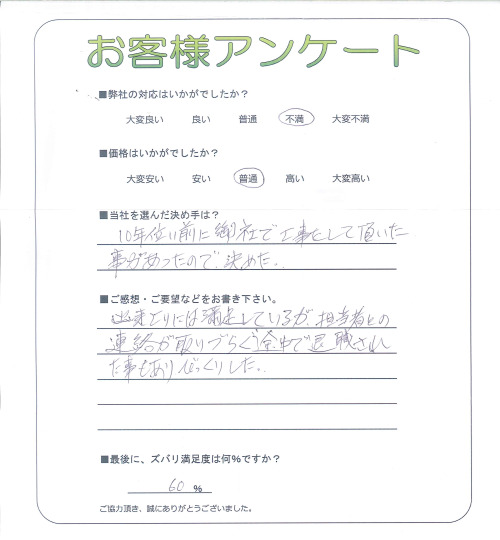 お客様アンケート
■弊社の対応はいかがでしたか？
大変良い　良い　普通　不満　大変不満
■価格はいかがでしたか？
大変安い　安い　普通　高い　大変高い
■当社を選んだ決め手は？
10年位い前に御社で工事をして頂いた
事があったので、決めた。
■ご感想・ご要望などをお書き下さい。
出来上りには満足しているが、担当者との
連絡が取りづらく途中で退職され
た事もありびっくりした。
■最後に、ズバリ満足度は何％ですか？
60 ％
ご協力頂き、誠にありがとうございました。